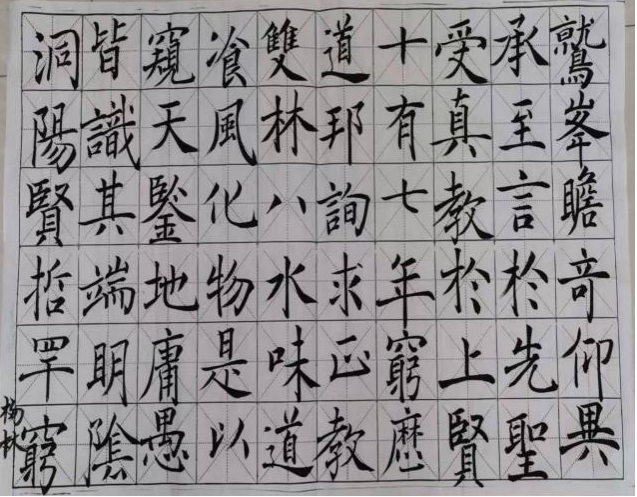 鷲峯瞻奇仰異
承至言於先聖
受真教於上賢
十有七年窮歷
道邦詢求正教
雙林八水味道
飡風化物是以
窺天鑒地庸愚
皆識其端明陰
洞陽賢哲罕窮
楊林